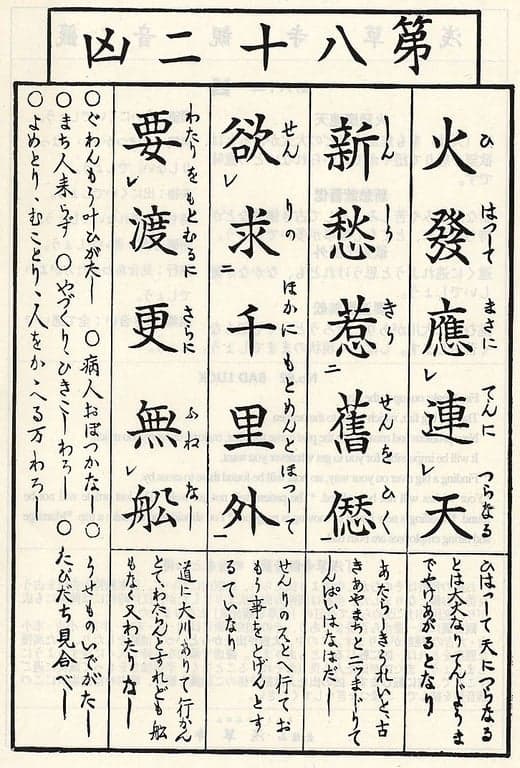 第八十二凶
火發應連天
ひ はつして まさに てんに つらなる
ひはつして天につらなる
とは大火なりてんじよりま
でやけあがるとなり
新愁惹舊愆
しんしう きう せんをひく
あたらしきうれいと古
きあやまちと二ツまじりて
しんぱいはなはだし
欲レ求ニ千里外一
せんりの ほかにもとめんとほつして
せんりのそとへ行てお
もう事をとげんとす
るていなり
要レ渡更無レ船
わたりをもとむるに さらに ふねなし
道に大川ありて行かん
とてわたらんとすれども船
もなく又わたりなし
○ぐわんもう叶ひがたし ○病人おぼつかなし ○うせものいでがたし
○まち人来らず ○やづくり、ひきこしわろし ○たびだち見合べし
○よめとり、むことり、人をかゝへる万わろし